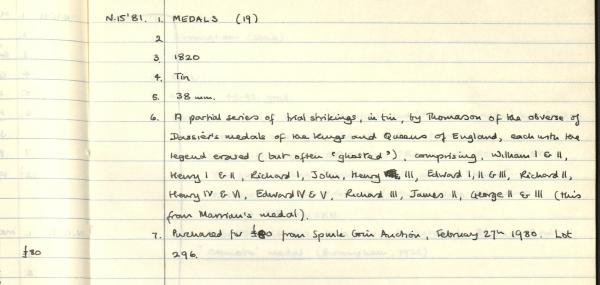 N.15'81. 1. MEDALS (19)
2
3. 1820
4. Tin
5. 38 mm.
6. A partial series of trial strikings, in tin, by Thomason of the obverse of
Dassier's medals of the Kings and Queens of England, each with the
legend erased (but often "ghosted"), comprising, William I & II,
Henry I & II, Richard I, John, Henry III, Edward I, II & III, Richard II,
Henry IV & VI, Edward IV & V, Richard III, James II, George II & III (this
from Marrian's medal).
7. Purchased for £80 from Spink Coin Auction, February 27th 1980. Lot
£80 296.